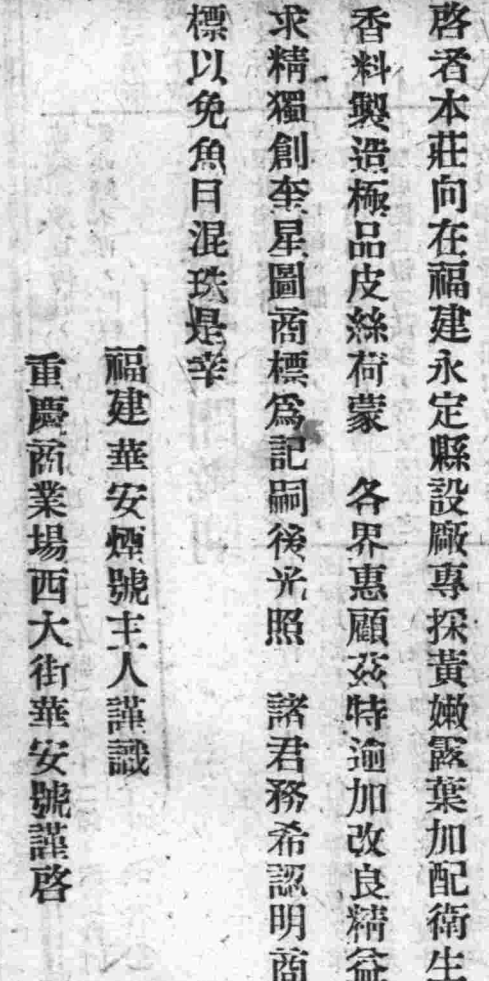 啓者本莊向在福建永定縣設廠專採黃嫩露葉加配衛生
香料製造極品皮絲荷蒙　各界惠顧茲特逾加改良精益
求精獨創奎星圖商標爲記嗣後光照　諸君務希認明商
標以免魚目混珠是幸
福建華安煙號主人謹識
重慶商業場西大街華安號謹啓